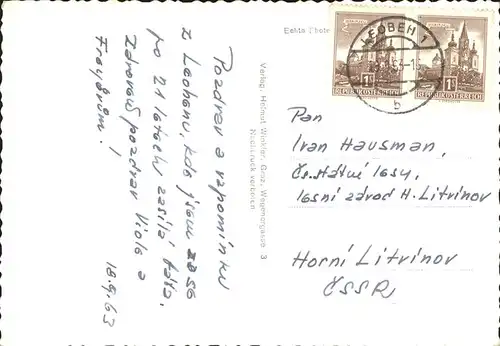 Pozdrav a vzpomínku
z Leobenu, kde jsem zase
po 21 letech zasílá táta.
Zdravou pozdrav Viole a
18.9.63
Echte Photo
Verlag, Helmut Winkler, Graz, Wegenergasse 3
Nachdruck verboten
LEOBEN 1
63-1
b
1S
REPUBLIK ÖSTERREICH
1S
REPUBLIK ÖSTERREICH
Pan
Ivan Hausman,
Čs. státní lesy,
lesní závod H. Litvínov
Horní Litvínov
ČSSR